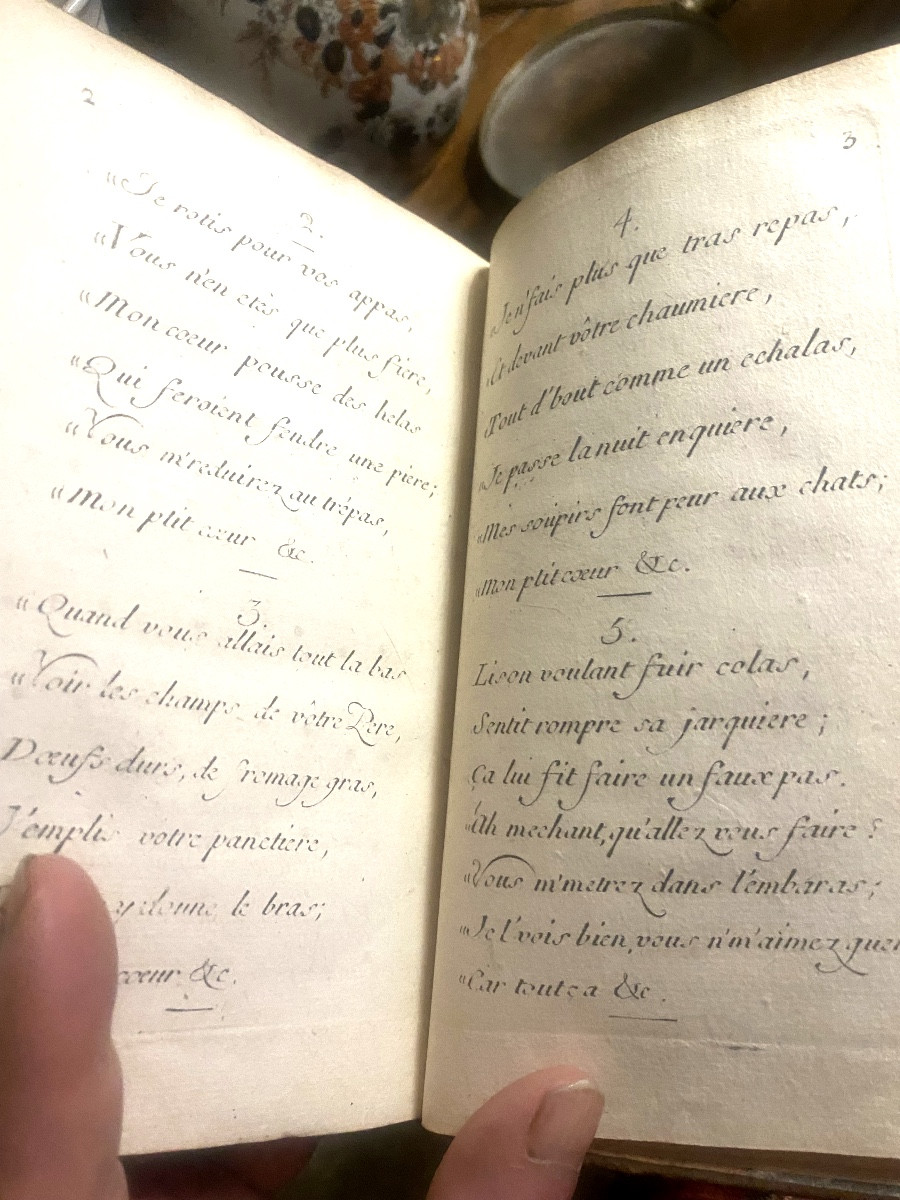 2
2.
"Je rotis pour vos appas,
"Vous n'en etés que plus fiere,
"Mon cœur pousse des helas
"Qui feroient fendre une piere;
"Vous m'reduirez au trépas,
"Mon ptit cœur &c.
3.
"Quand vous allais tout la bas
"Voir les champs de vôtre Pere,
Dœufs durs, de fromage gras,
J'emplis votre panetiere,
y donne le bras;
cœur &c.
3.
4.
"Je n'fais plus que tras repas,
"Et devant vôtre chaumiere,
"Tout d'bout comme un echalas,
"Je passe la nuit enquiere,
"Mes soupirs font peur aux chats;
"Mon ptit cœur &c.
5.
Lison voulant fuir colas,
Sentit rompre sa jarquiere;
Ça lui fit faire un faux pas.
"Ah mechant, qu'allez vous faire?
"Vous m'metrez dans l'embaras;
"Je l'vois bien, vous n'm'aimez
"Car tout ça &c.